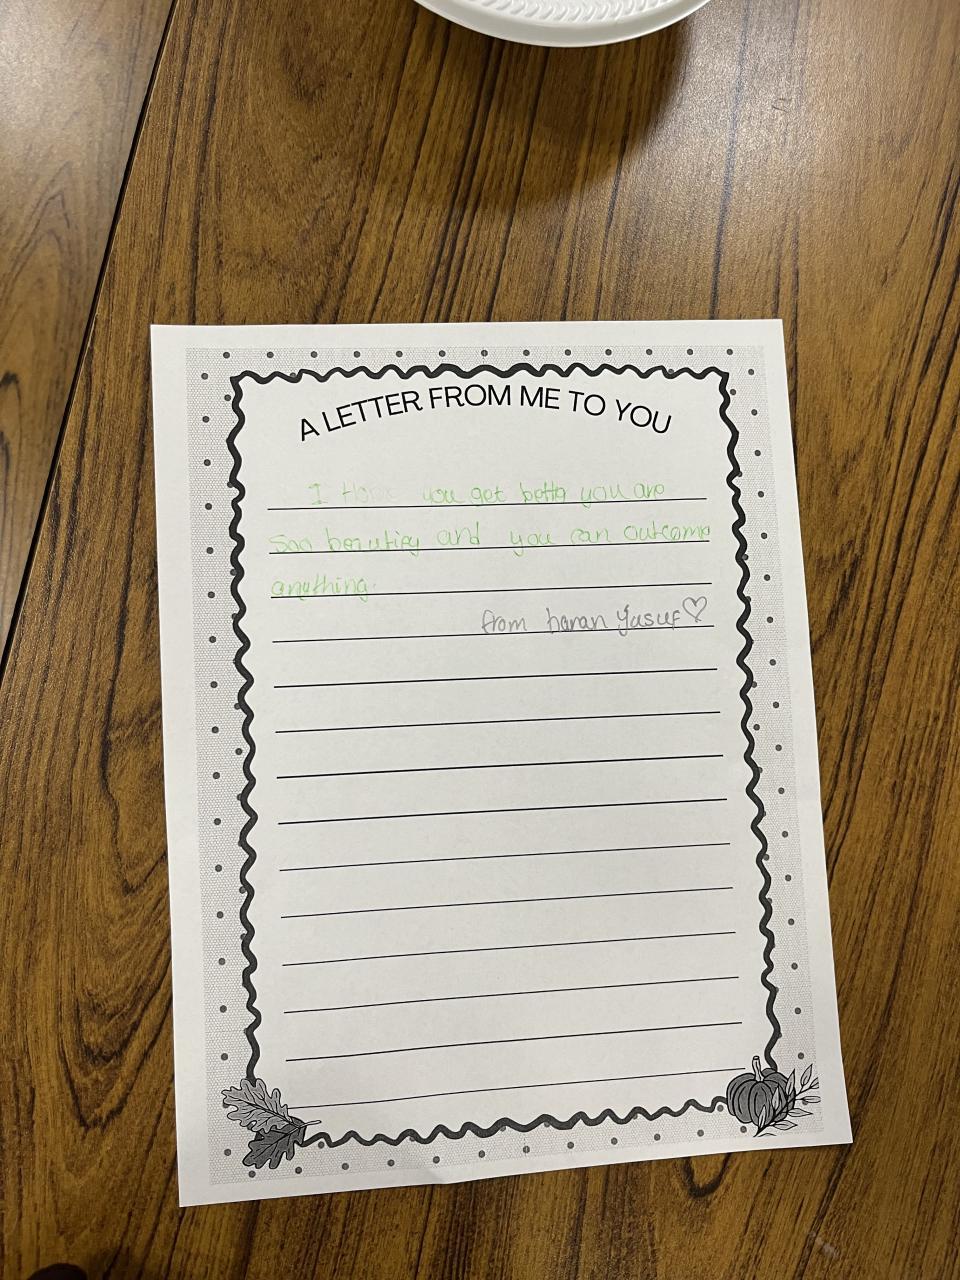 A LETTER FROM ME TO YOU
I Hope you get bettr you are
soo beautify and you can outcome
anything.
from haran Yusuf♡